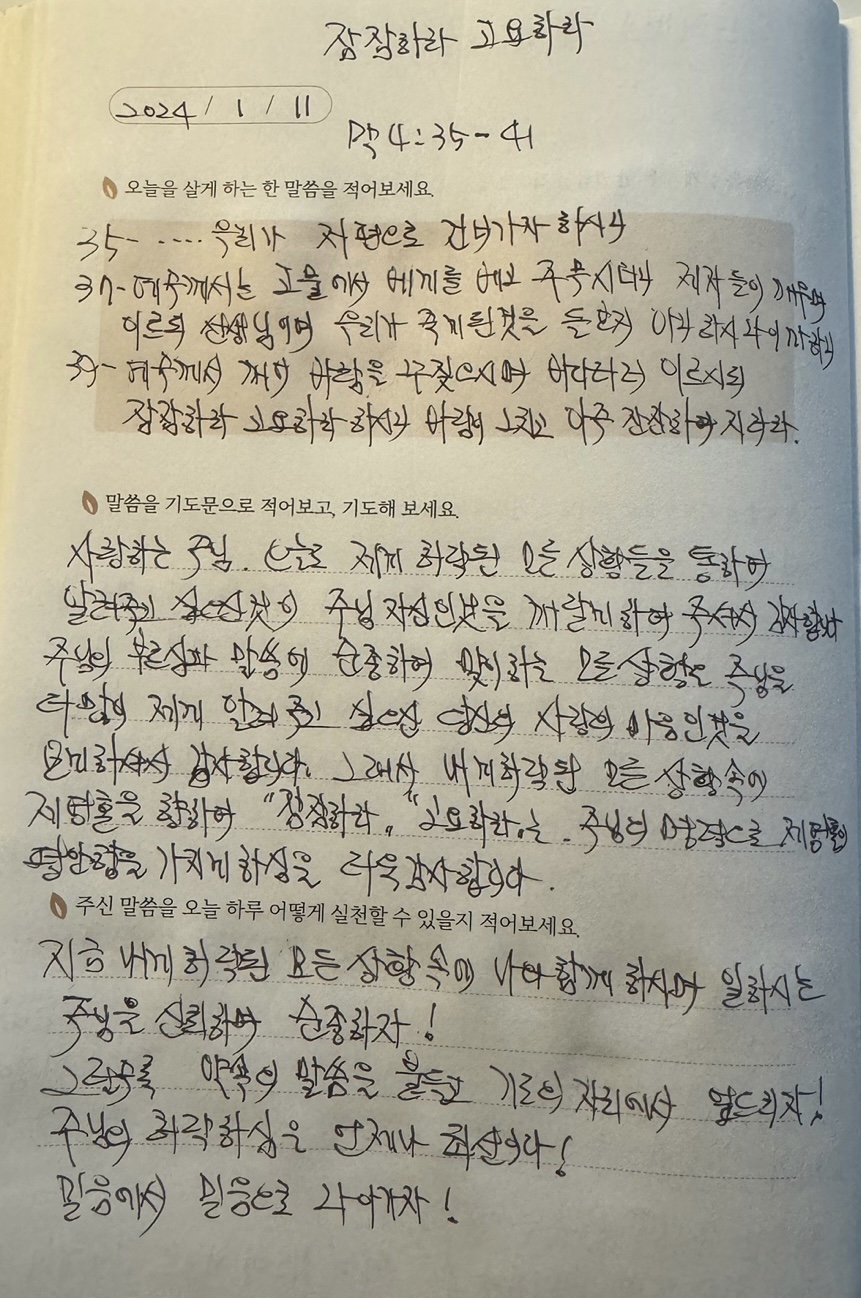 잠잠하라 고요하라
2024 / 1 / 11
막 4:35-41
오늘을 살게 하는 한 말씀을 적어보세요.
35- .... 우리가 저편으로 건너가자 하시니
37- 예수께서는 고물에서 베개를 베고 주무시더니 제자들이 깨우며
이르되 선생님이여 우리가 죽게된것을 돌보지 아니 하시나이까 하니
39- 예수께서 깨어 바람을 꾸짖으시며 바다더러 이르시되
잠잠하라 고요하라 하시니 바람이 그치고 아주 잔잔하여 지더라.
말씀을 기도문으로 적어보고, 기도해 보세요.
사랑하는 주님. 오늘도 제게 허락된 모든 상황들을 통하여
알려주고 싶으신것이 주님 자신인것을 깨닫게하여 주셔서 감사합니다
주님의 부르심과 말씀에 순종하여 맞이하는 모든 상황은 주님을
더 많이 제게 알려 주고 싶으신 당신의 사랑의 마음인것을
믿게하셔서 감사합니다. 그래서 내게 허락된 모든 상황속에
제 영혼을 향하여 "잠잠하라," "고요하라,"는 주님의 명령으로 제 영혼이
평안함을 가지게 하심을 더욱 감사합니다.
주신 말씀을 오늘 하루 어떻게 실천할 수 있을지 적어보세요.
지금 내게 허락된 모든 상황 속에 나와 함께 하시며 일하시는
주님을 신뢰하며 순종하자!
그럴수록 약속의 말씀을 붙들고 기도의 자리에서 엎드리자!
주님의 허락하심은 언제나 최선이다!
믿음에서 믿음으로 나아가자!